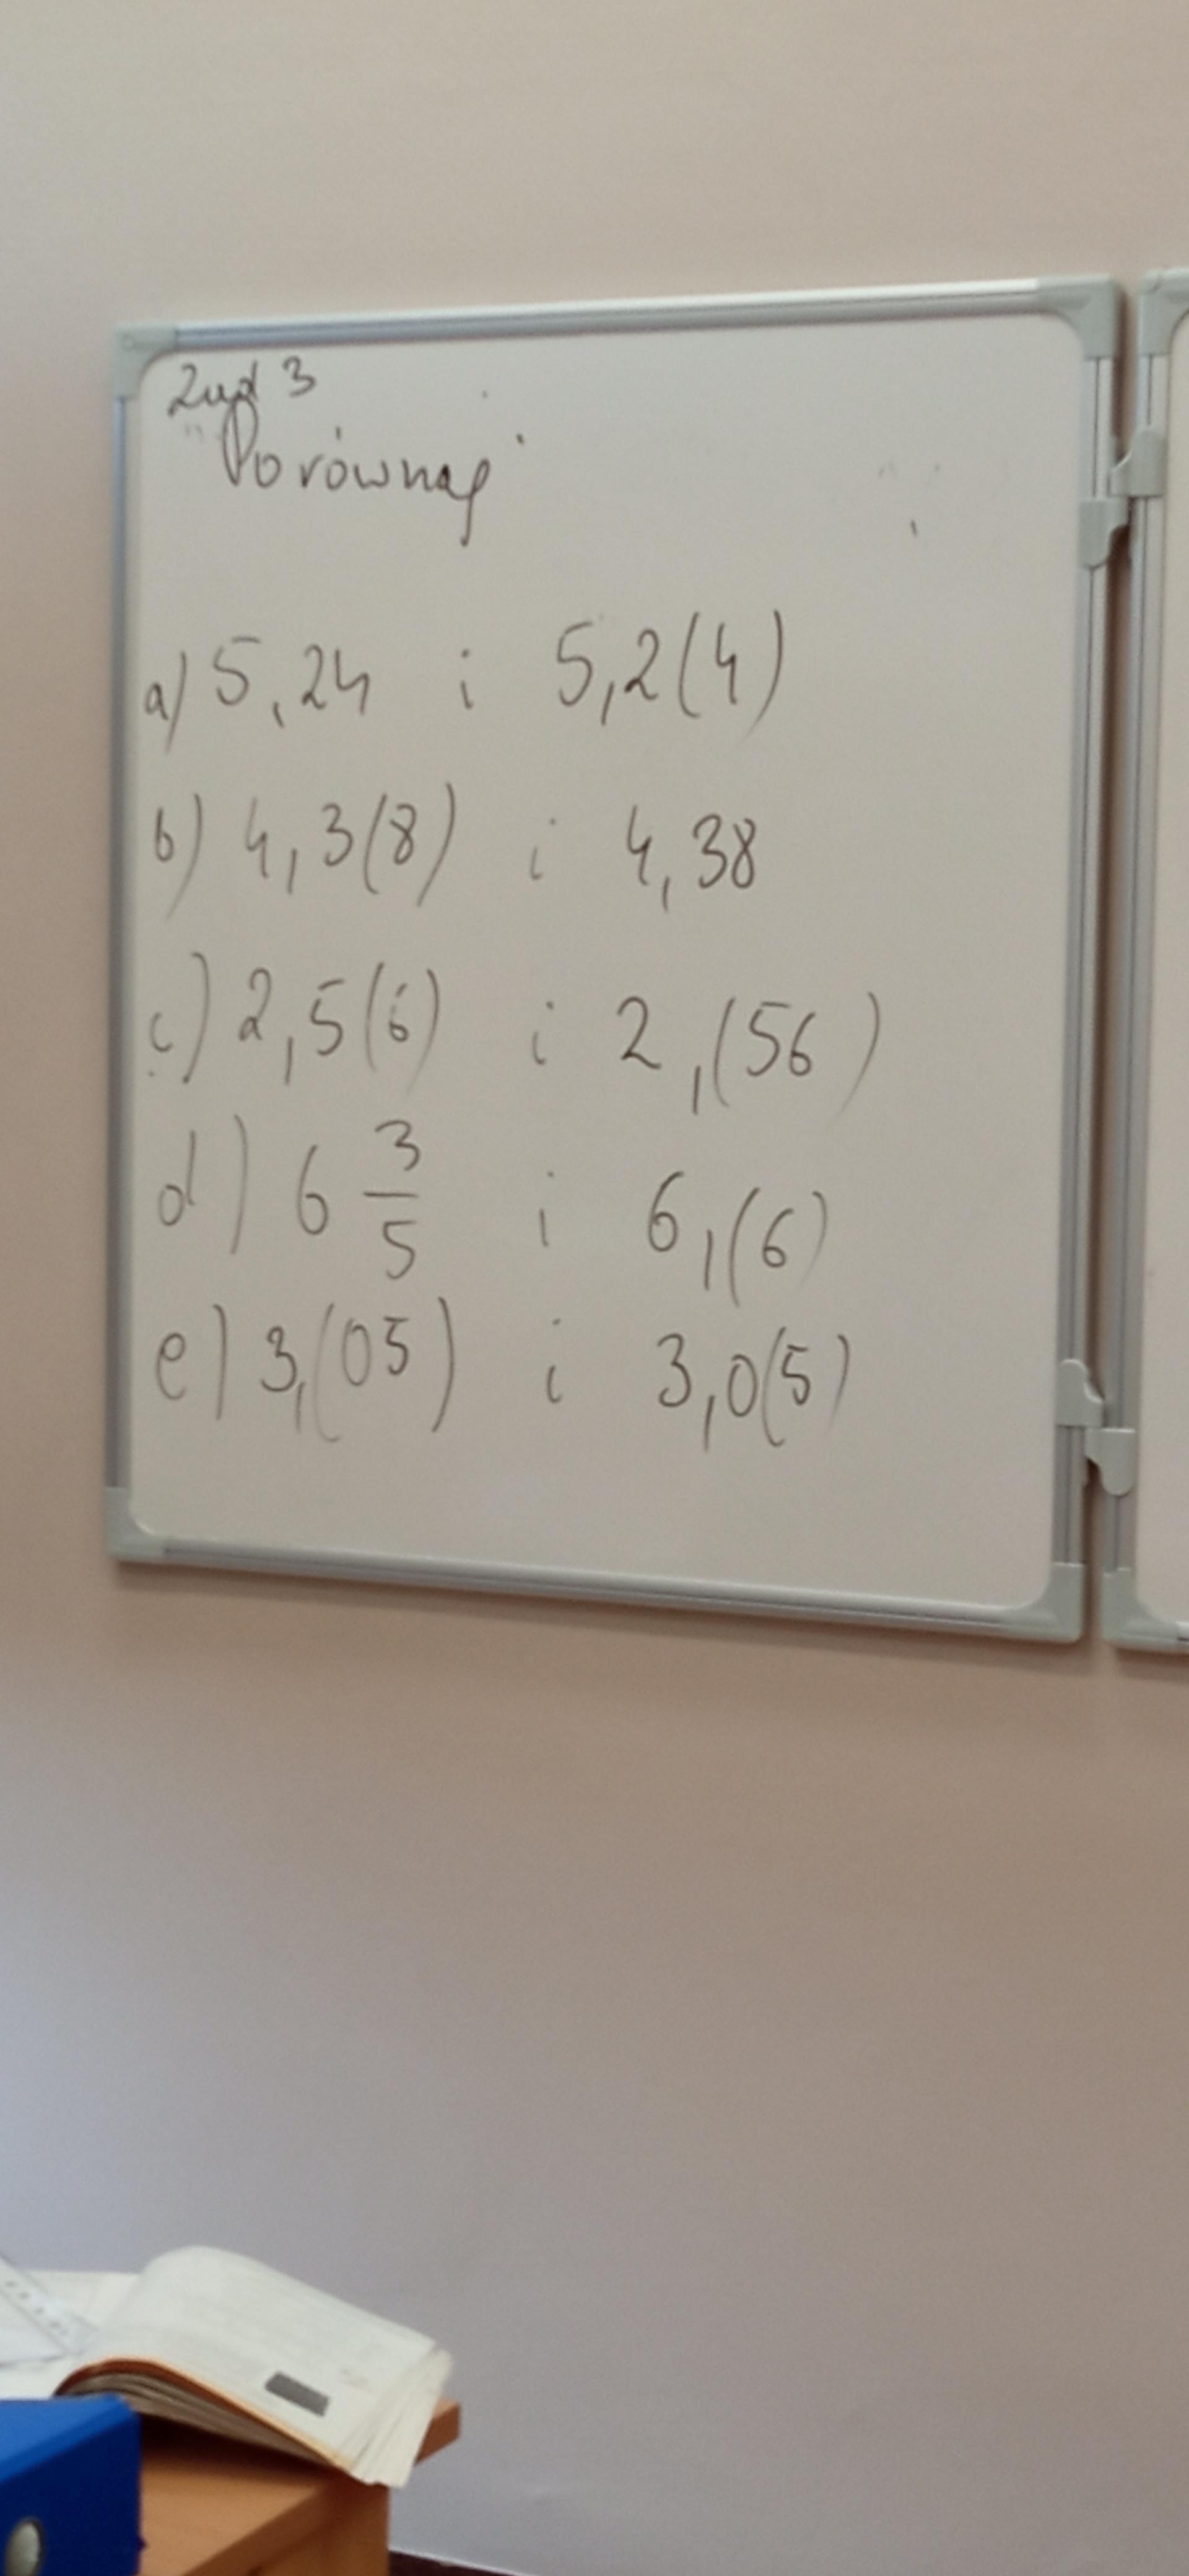 Zad 3
Porównaj
a) 5,24 i 5,2(4)
b) 4,3(8) i 4,38
c) 2,5(6) i 2,(56)
d) 6 3/5 i 6,(6)
e) 3,(05) i 3,0(5)